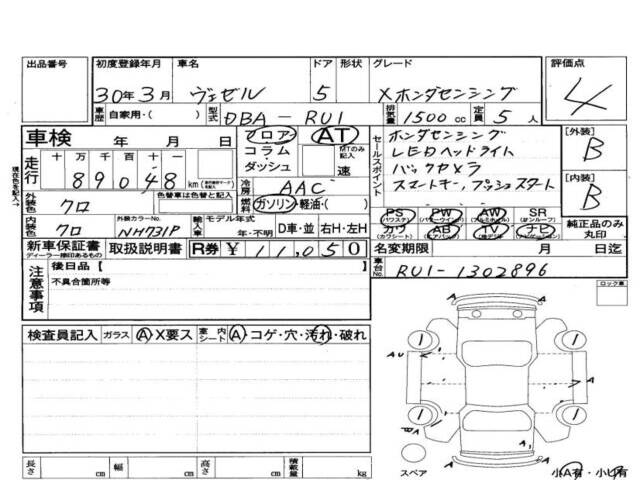 出品番号 初度登録年月 車名 ドア 形状 グレード 評価点
30年3月 ヴェゼル 5 Xホンダセンシング 4
車歴 自家用・( ) 型式 DBA-RU1 排気量 1500cc 定員 5人
車検 年 月 日 フロア AT
コラム MTのみ記入
ダッシュ 速
セールスポイント ホンダセンシング
LEDヘッドライト
バックカメラ
スマートキー, プッシュスタート
[外装] B
[内装] B
走行 十 万 千 百 十 一
89048 km
現在色を記入→
冷房 AAC
外装色 クロ 色替車は色替と記入
燃料 ガソリン・軽油・( )
内装色 クロ 外装カラーNo. NH731P 輸入車 モデル年式 年・不明 D車・並 右H・左H
PS (パワステ) PW (パワーウインドウ) AW (アルミホイール) SR (サンルーフ)
カワ (カワシート) AB (エアバッグ) TV ナビ (ナビゲーション)
純正品のみ丸印
新車保証書 ディーラー捺印あるもの 取扱説明書 R券 ¥11,050
名変期限 月 日迄
注意事項 後日品【
不具合箇所等
車台No. RU1-1302896
ロック車
検査員記入 ガラス A・X要ス 車内シート A・コゲ・穴・汚れ・破れ
AU A
1 1
A
1 1
A
A1
A
スペア
長さ cm 幅 cm 高さ cm 積載量 kg
小A有・小U有